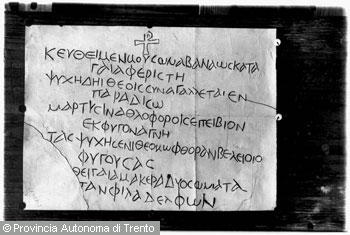 ΚΕΥΘΕΙΜΕΝΜΟΥϹΩΝΑΒΑΝΑΩϹΚΑΤΑ
ΓΑΙΑΦΕΡΙϹΤΗ
ΨΥΧΗΔΗΘΕΟΙϹϹΥΝΑΓΑΛΛΕΤΑΙΕΝ
ΠΑΡΑΔΙϹΩ
ΜΑΡΤΥϹΙΝΑΘΛΟΦΟΡΟΙϹΕΠΕΙΒΙΟΝ
ΕΚΦΥΓΟΝΑΓΝΗ
ΤΑϹΨΥΧΗϹΕΝΙΘΕΩΚΩΦΘΟΡΑΝΒΕΛΕΙΟΙΟ
ΦΥΓΟΥϹΑϹ
ΘΕΙΓΑΙΑΜΑΚΕΡΑΔΥΟϹΩΜΑΤΑ
ΤΑΝΦΙΛΑΔΕΛΦΩΝ
© Provincia Autonoma di Trento